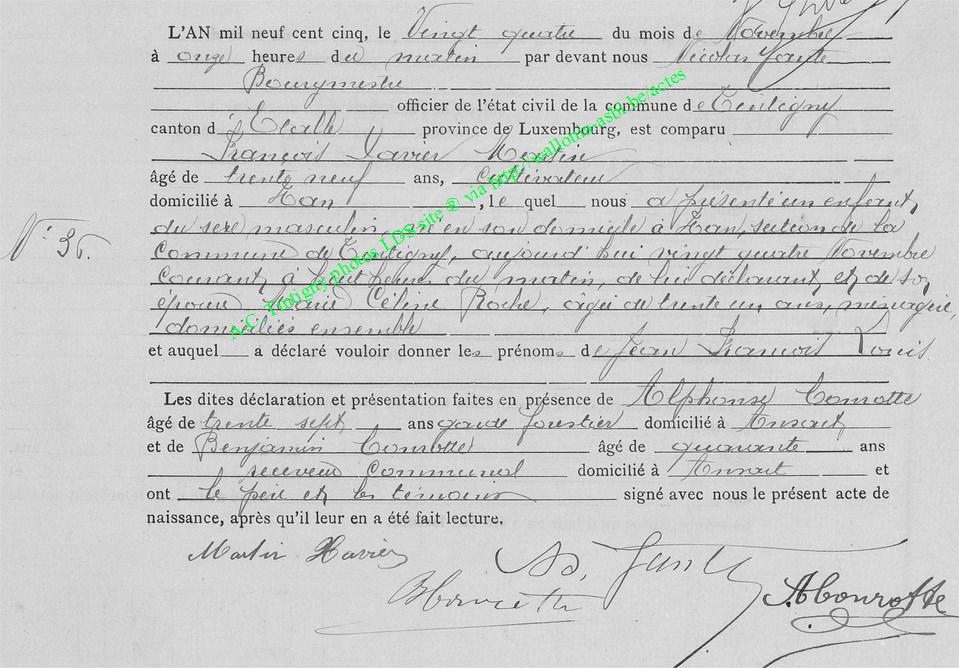 L'AN mil neuf cent cinq, le Vingt quatre du mois de Novembre
à onze heures du matin par devant nous Nicolas
Bourgmestre
officier de l'état civil de la commune de Tintigny
canton d'Etalle province de Luxembourg, est comparu
François Xavier Martin
âgé de trente neuf ans, Cultivateur
domicilié à Han, lequel nous a présenté un enfant
du sexe masculin, né en son domicile à Han, section de la
Commune de Tintigny, aujourd'hui vingt quatre Novembre
Courant, à huit heures du matin, de lui déclarant et de son
épouse Marie Céline Roche, âgée de trente un ans, ménagère,
domiciliés ensemble
et auquel a déclaré vouloir donner les prénoms de Jean François Louis
Les dites déclaration et présentation faites en présence de Alphonse Conrotte
âgé de trente sept ans garde forestier domicilié à Ansart
N° 36.
et de Benjamin Conrotte âgé de quarante ans
receveur Communal domicilié à Ansart et
ont le père et les témoins signé avec nous le présent acte de
naissance, après qu'il leur en a été fait lecture.
Martin Xavier
BConrotte
AConrotte
A.C. Tintigny photos LDS site ® via http://wallonia-asbl.be/actes